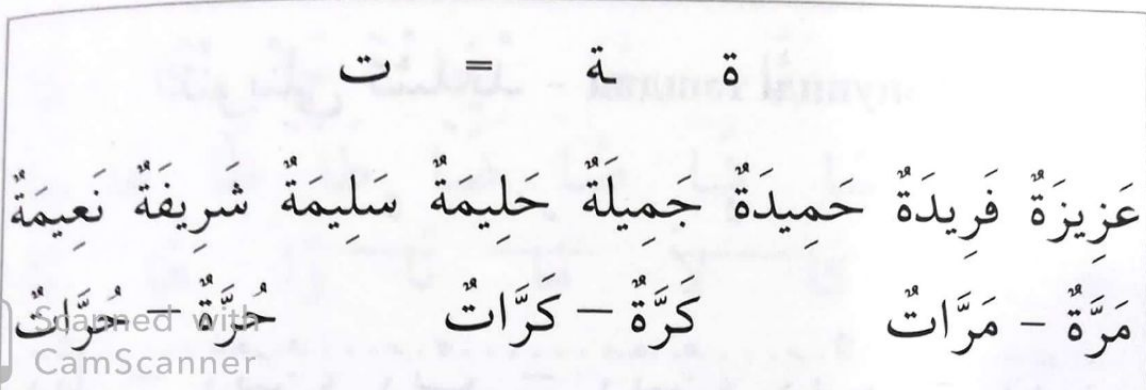 ة ـة = ت
عَزِيزَةٌ فَرِيدَةٌ حَمِيدَةٌ جَمِيلَةٌ حَلِيمَةٌ سَلِيمَةٌ شَرِيفَةٌ نَعِيمَةٌ
مَرَّةٌ – مَرَّاتٌ كَرَّةٌ – كَرَّاتٌ حُرَّةٌ – حُرَّاتٌ
Scanned with
CamScanner